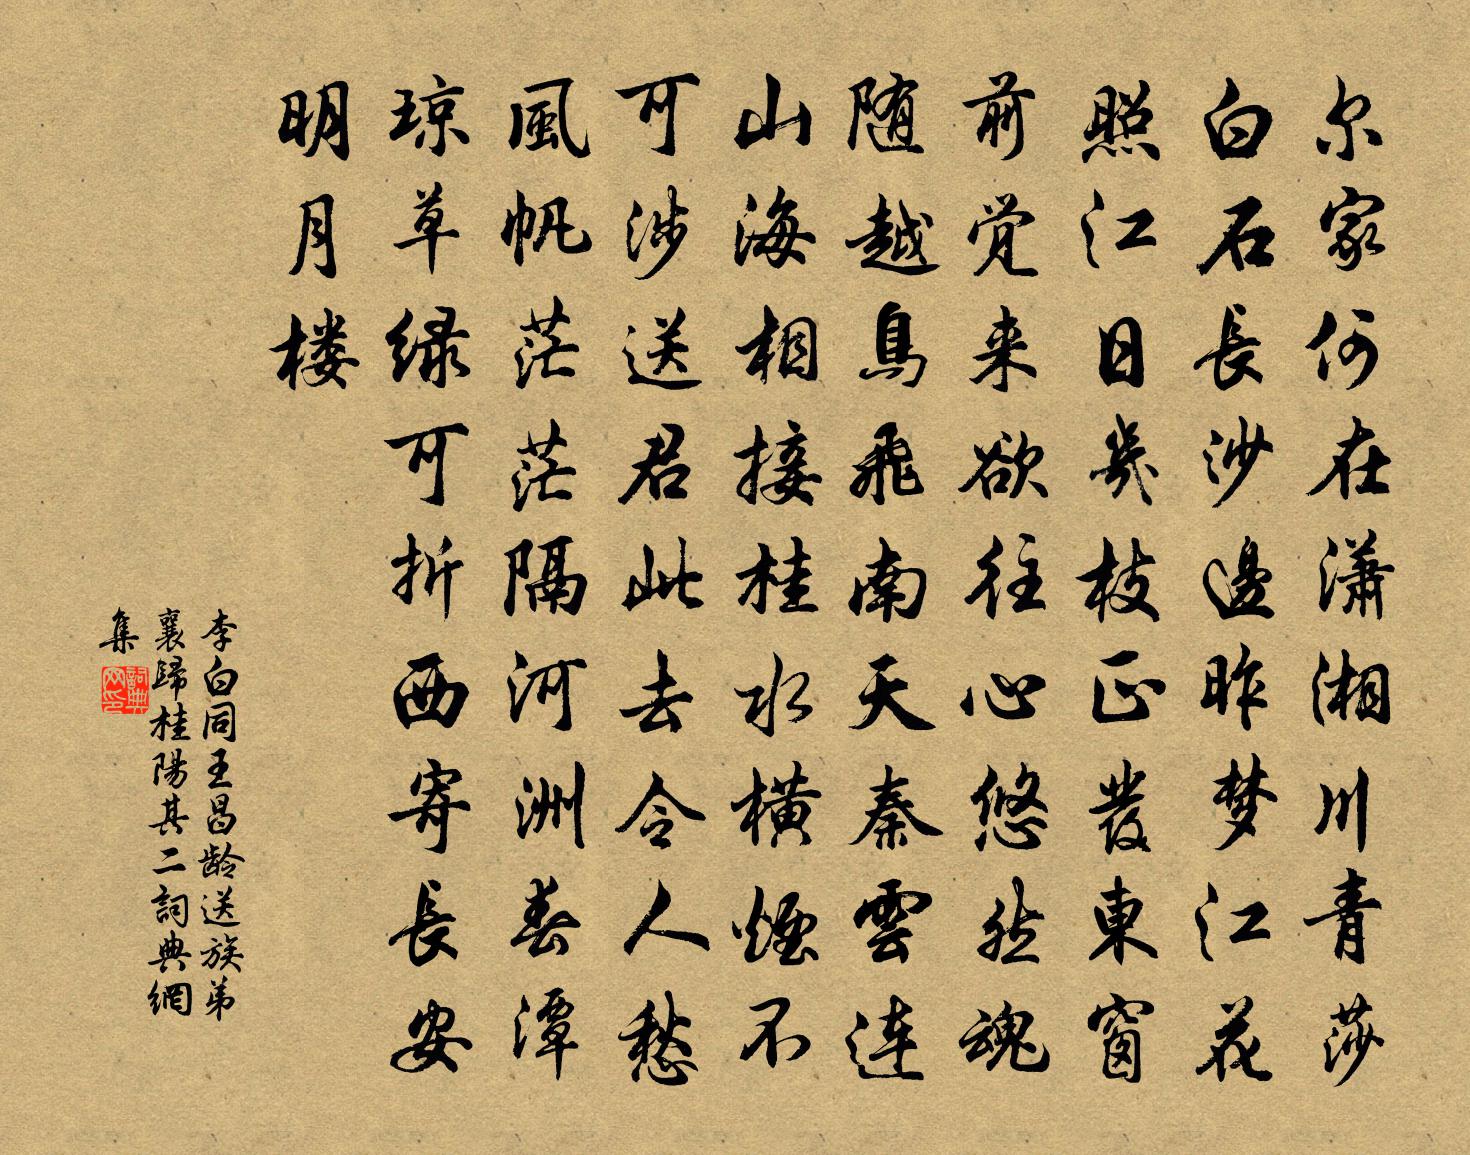 尔家何在潇湘川青莎
白石長沙邊昨梦江花
照江日幾枝正發東窗
前觉来欲往心悠然魂
随越鳥飛南天秦雲连
山海相接桂水横煙不
可涉送君此去令人愁
風帆茫茫隔河洲春潭
琼草绿可折西寄長安
明月楼
李白同王昌龄送族弟
襄歸桂陽其二詞典網
集
詞典网印